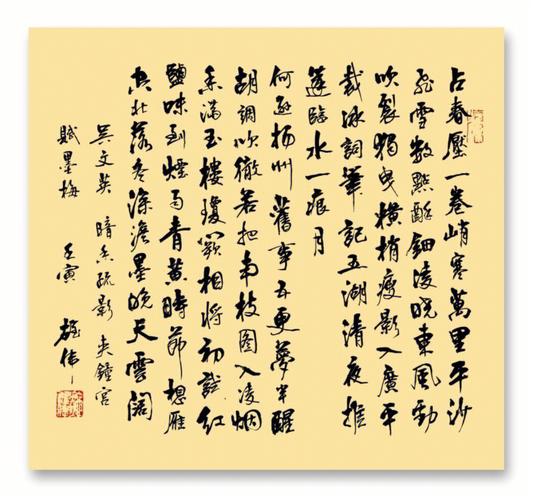 占春壓一卷峭寒萬里平沙
飛雪數點酥鈿凌曉東風勁
吹裂獨曳橫梢瘦影入廣平
裁冰詞筆記五湖清夜推
蓬臨水一痕月
何遜揚州舊事五更夢半醒
胡調吹徹若把南枝圖入凌烟
香滿玉樓瓊闕相將初試紅
鹽味到煙雨青黄時節想雁
空北落冬深澹墨晚天雲闊
吳文英 暗香疏影 夾鐘宮
賦墨梅 壬寅 雄偉